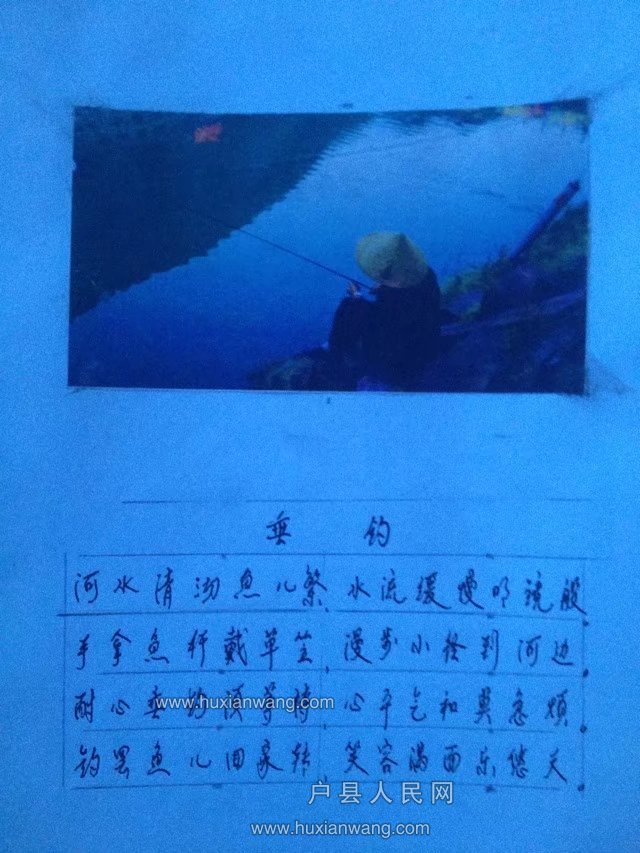 垂钓
河水清澈鱼儿繁，水流缓慢明镜般。
手拿鱼杆戴草笠，漫步小径到河边。
耐心垂钓须等待，心平气和莫急烦。
www.huxianwang.com
钓罢鱼儿回家转，笑容满面乐悠天
户县人民网
www.huxianwang.com